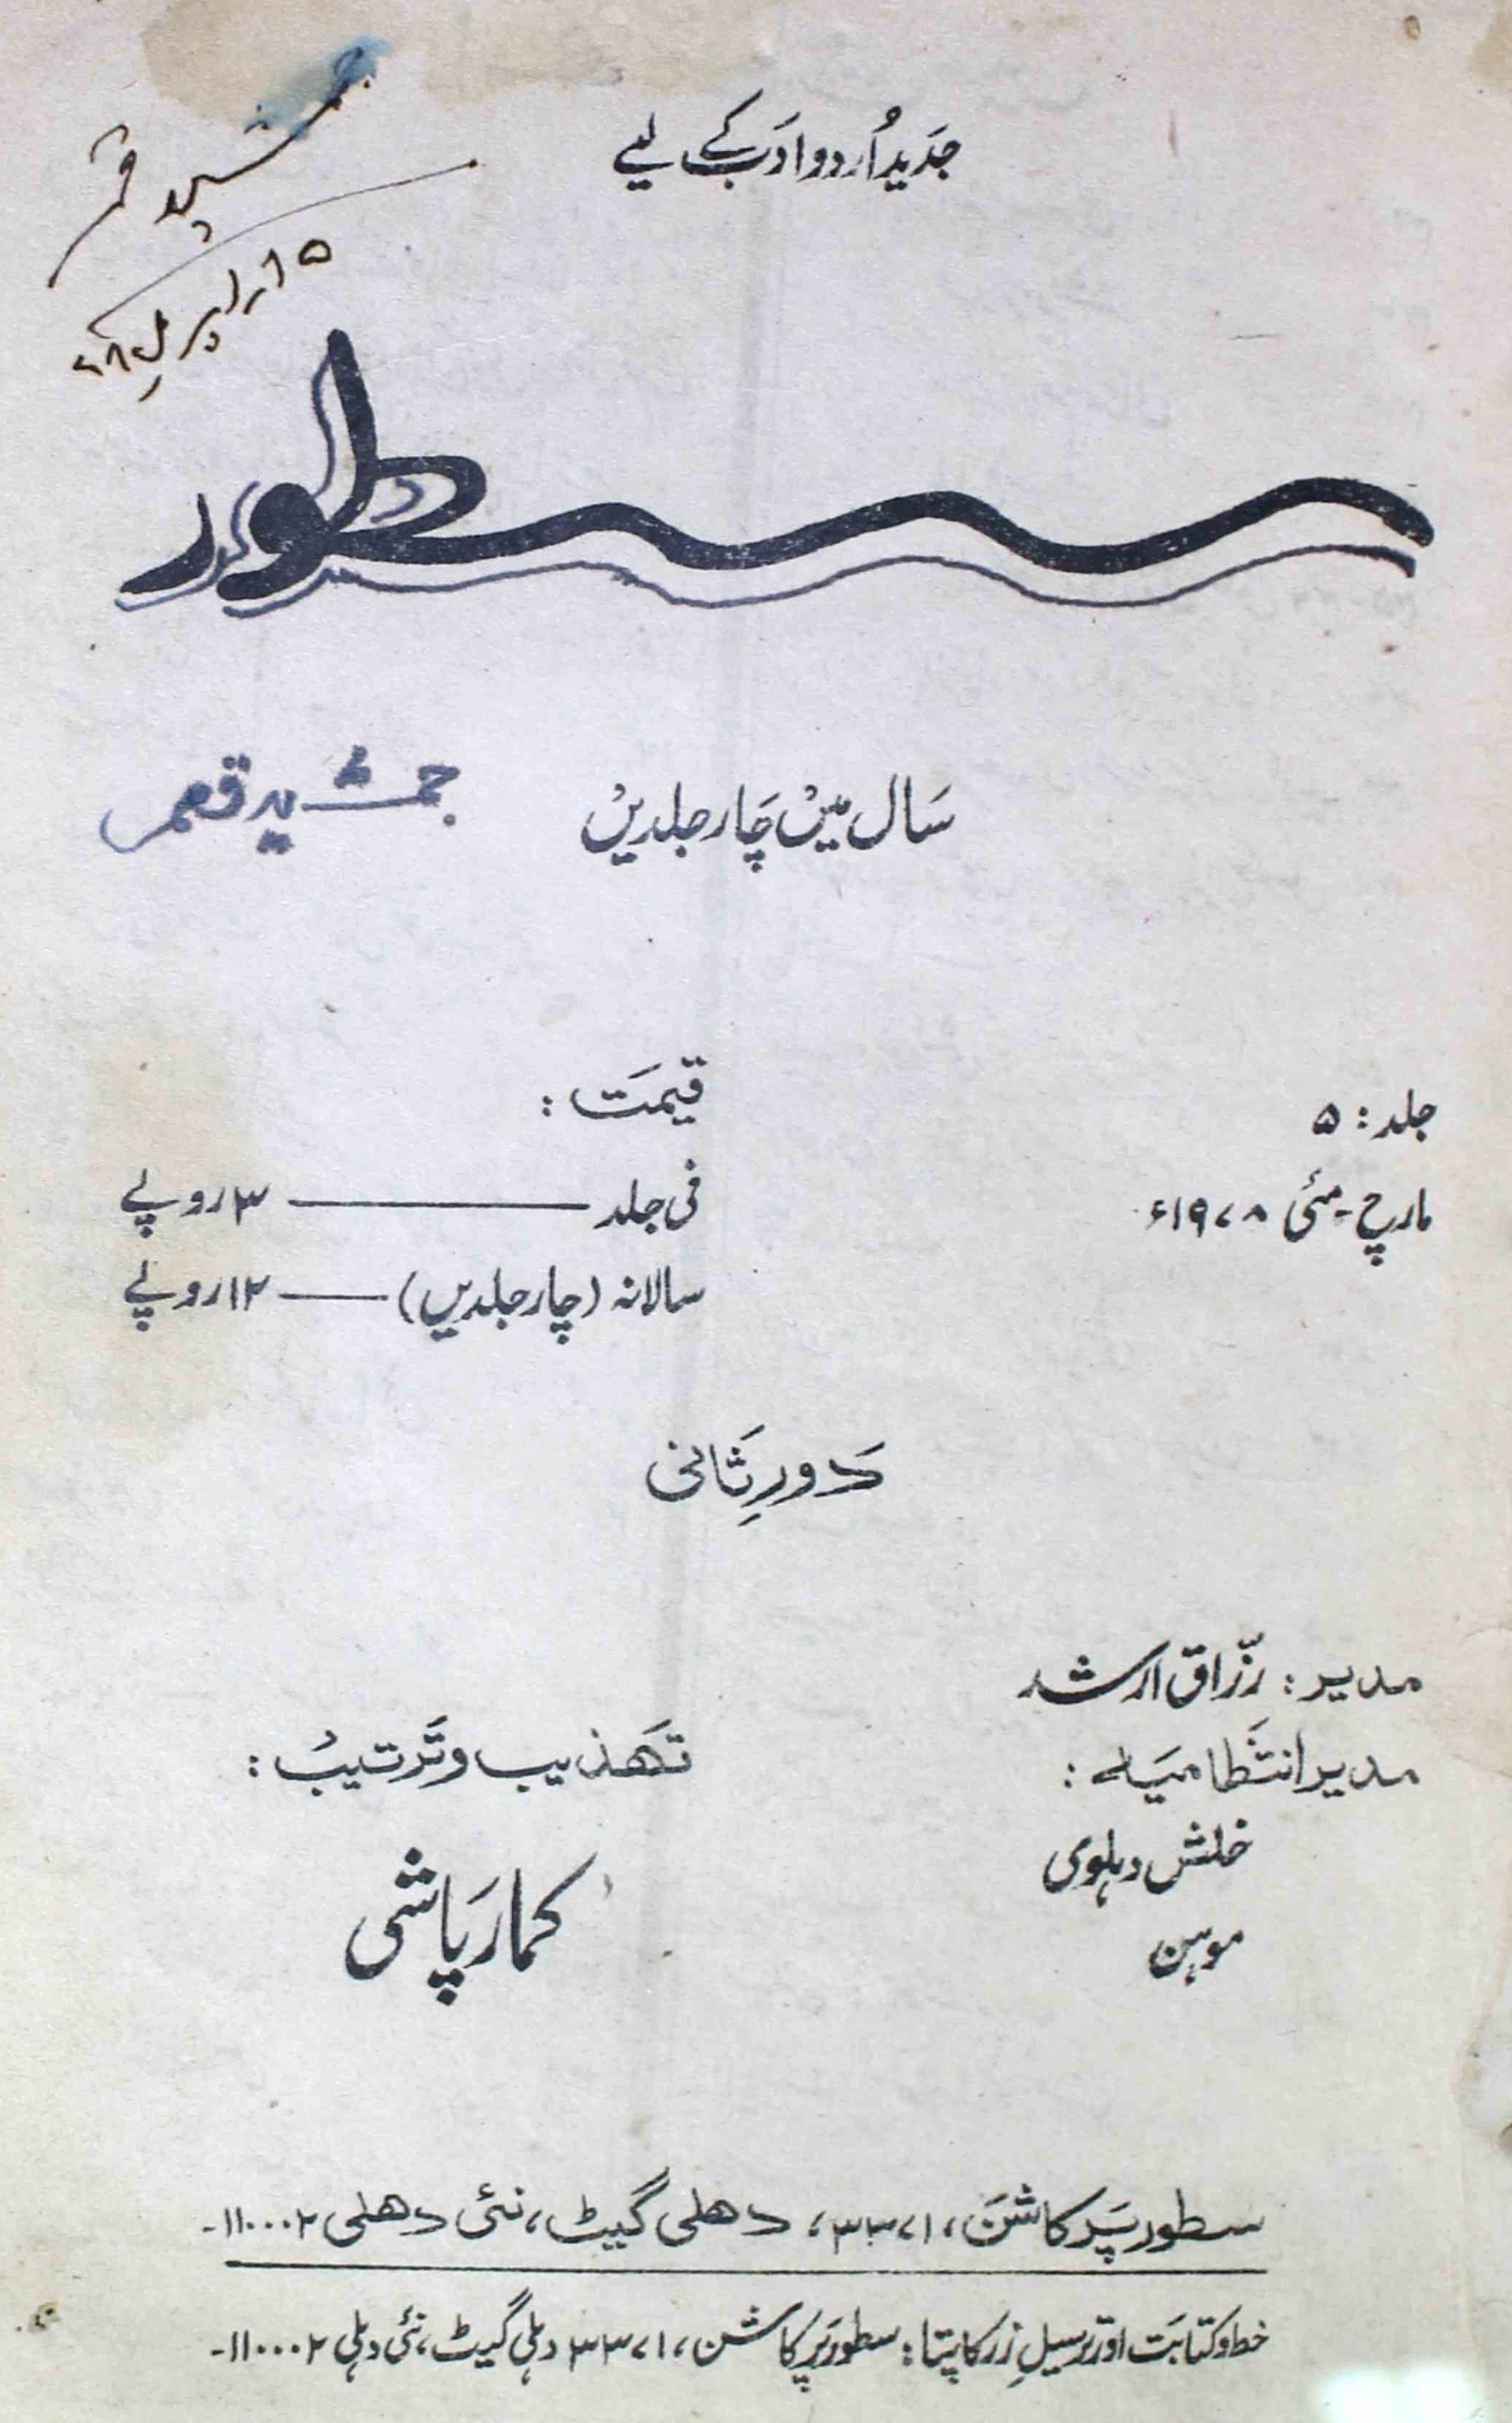 جَدید اُردو ادَب کے لیے
جمشید قمر
۱۵ر اپریل ۷۸ء
سطور
سَال میں چَار جلدیں
جمشید قمر
جلد : ۵
مارچ ۔ مئی ۱۹۷۸ء
قیمَت :
فی جلد ——— ۳ روپے
سالانہ (چار جلدیں) —— ۱۲ روپے
دَورِ ثَانی
مدیر : رزّاق ارشد
مدیر انتظامیَہ :
خلش دہلوی
موہن
تَہذیب و تَرتیب :
کمار پَاشی
سطور پَرکاشَن، ۳۳۷۱، دھلی گیٹ، نئی دھلی ۱۱۰۰۰۲۔
خط و کتابَت اور ترسیلِ زر کا پتا : سطور پَرکاشن، ۳۳۷۱ دہلی گیٹ، نئی دہلی ۱۱۰۰۰۲۔